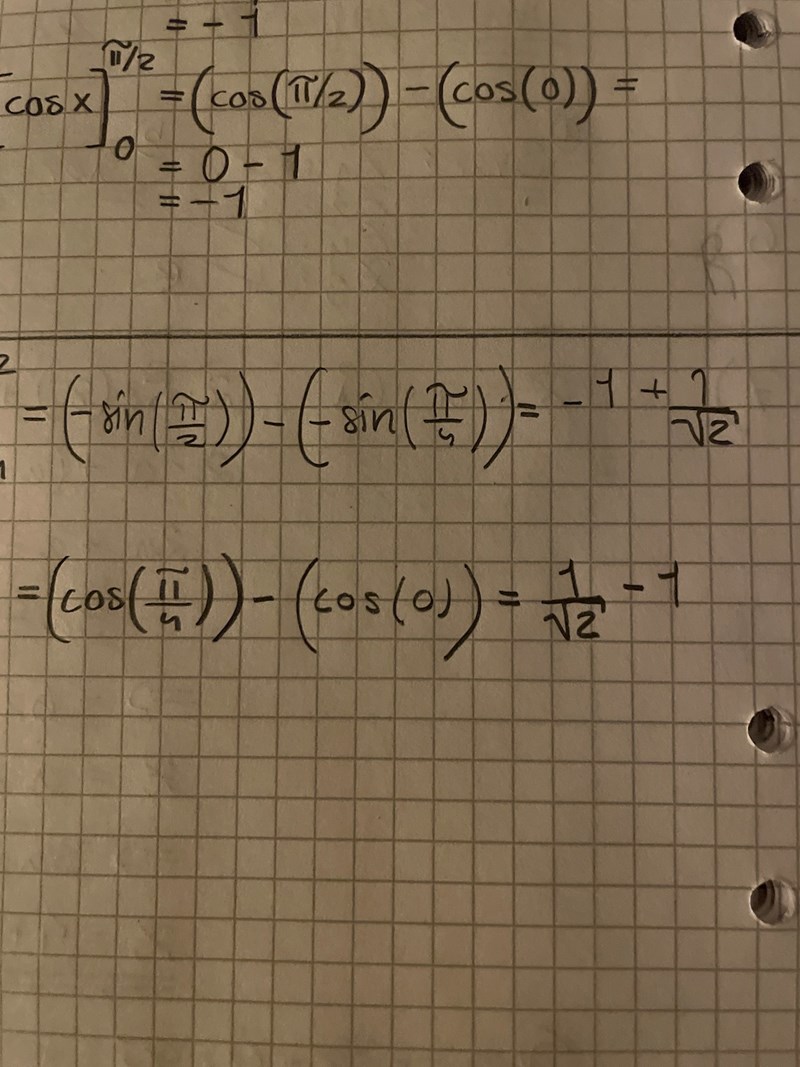 = - 1
cos x]₀^π/2 = (cos(π/2)) - (cos(0)) =
= 0 - 1
= - 1
2
= (-sin(π/2)) - (-sin(π/4)) = - 1 + 1/√2
1
= (cos(π/4)) - (cos(0)) = 1/√2 - 1